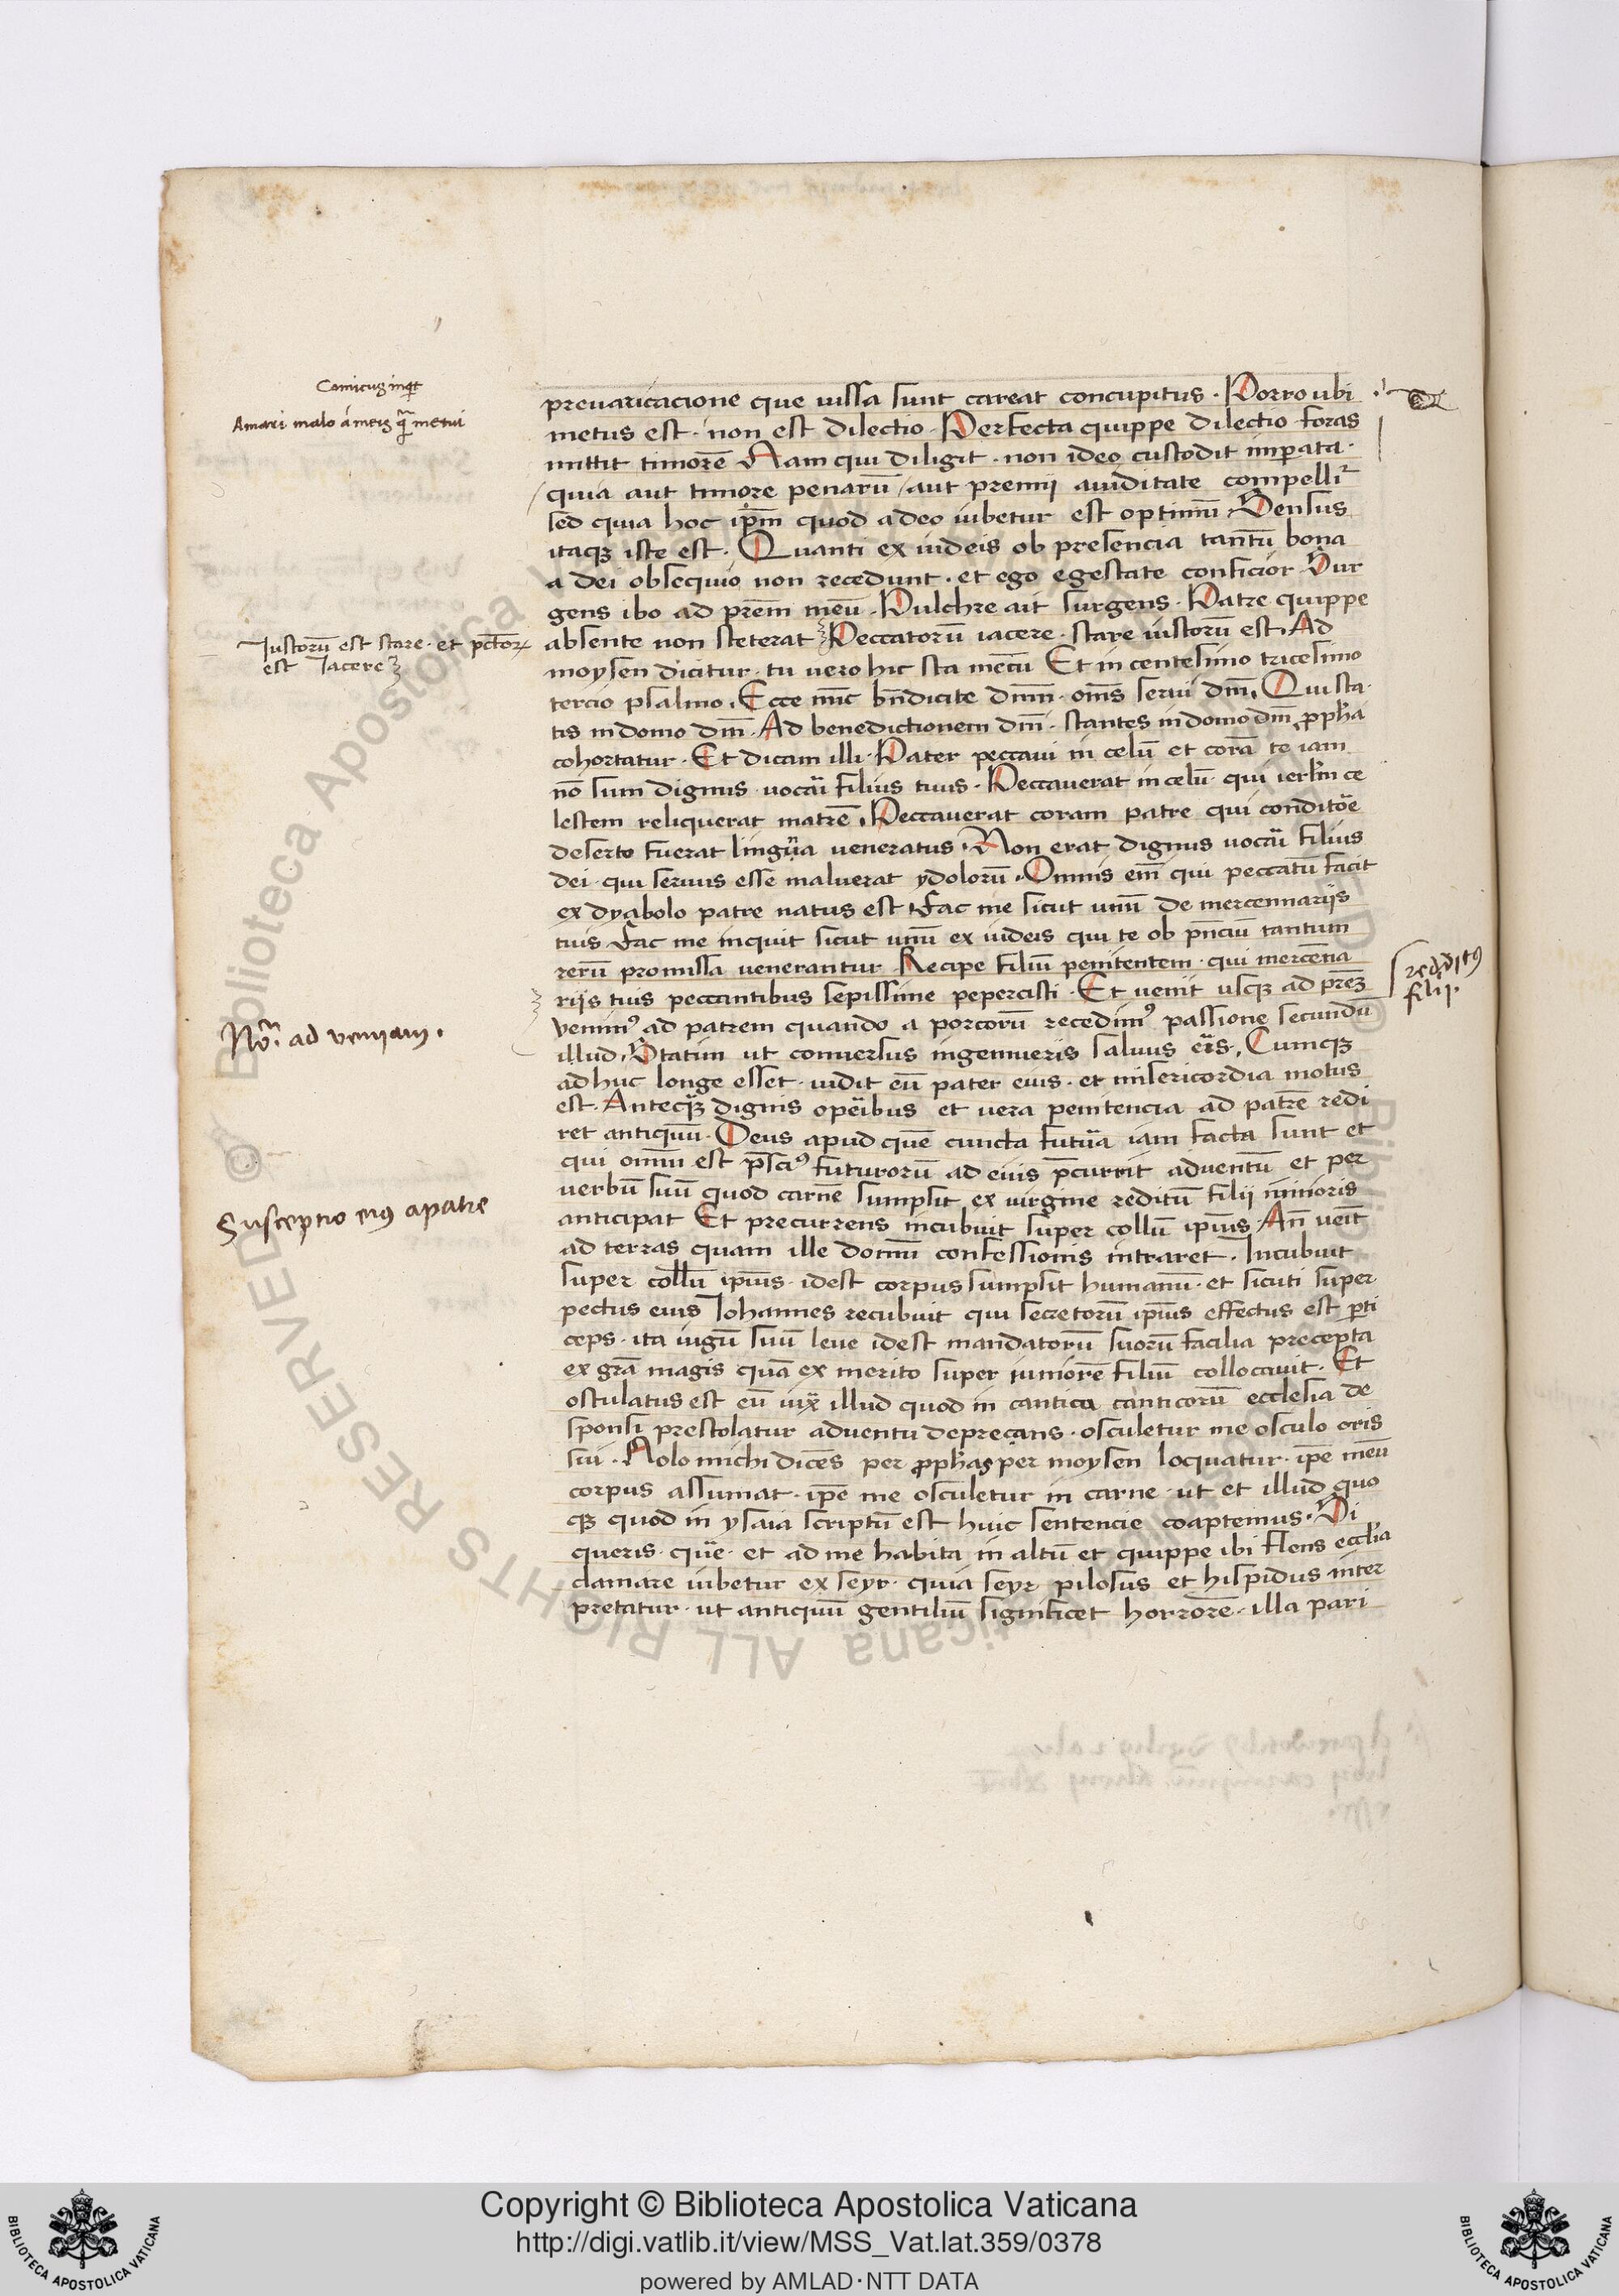 Comicus inqt
Amari malo a meis q̃ metui
preuaricacione que iussa sunt careat concupitus · Porro ubi
metus est · non est dilectio · Perfecta quippe dilectio foras
mittit timorē Nam qui diligit · non ideo custodit imperata ·
quia aut timore penarū / aut premii auiditate compellit̃
sed quia hoc ip̄m quod a deo iubetur est optimū · Sensus
itaq3 iste est · Quanti ex iudeis ob presencia tantū bona
a dei obsequio non recedunt · et ego egestate conficior Sur
gens ibo ad prēm meū · Pulchre ait surgens · Patre quippe
absente non steterat Peccatorū iacere · stare iustorū est · Ad
Justorū est stare · et pctor̄
est Jacere
moysen dicitur · tu vero hic sta mecū Et in centesimo tricesimo
tercio psalmo · Ecce nūc bn̄dicite dnm̄ · oms̄ serui dnī · Qui sta
tis in domo dnī · Ad benedictionem dnī · stantes in domo dnī ꝓph̄a
cohortatur · Et dicam illi · Pater peccaui in celū et corā te iam
nō sum dignus uocari filius tuus · Peccauerat in celū qui ierl̄m ce
lestem reliquerat matrē · Peccauerat coram patre qui conditore
deserto fuerat lingua ueneratus · Non erat dignus uocari filius
dei · qui seruus esse maluerat ydolorū · Omnis em̄ qui peccatū facit
ex dyabolo patre natus est · Fac me sicut unū de mercennariis
tuis Fac me inquit sicut unū ex iudeis qui te ob pn̄ciū tantum
rerū promissa uenerantur Recipe filiū penitentem · qui mercēna
riis tuis peccantibus sepissime pepercisti · Et uenit usq3 ad prēm
redditꝰ
filij.
venimꝰ ad patrem quando a porcorū recedimꝰ passione secundū
Nr̄i ad veniam.
illud · Statim ut conuersus ingemueris saluus eris · Cumq3
adhuc longe esset · uidit eū pater eius · et misericordia motus
est · Anteq̃3 dignis operibus et uera penitencia ad patrē redi
ret antiquū · Deus apud quē cuncta futura iam facta sunt et
qui omniū est p̄sciꝰ futurorū ad eius p̄currit aduentū et per
uerbū suū quod carnē sumpsit ex uirgine reditū filii iunioris
Susceptio eiꝰ a patre
anticipat Et precurrens incubuit super collū ipīus · An̄ uenit
ad terras quam ille domū confessionis intraret · Incubuit
super collū ipīus · idest corpus sumpsit humanū · et sicuti super
pectus eius Johannes recubuit qui secretorū ipīus effectus est ꝑti
ceps · ita iugū suū leue idest mandatorū suorū facilia precepta
ex grā magis quā ex merito super iuniorē filiū collocauit · Et
osculatus est eū iuxta illud quod in cantico canticorū ecclesia de
sponsi prestolatur aduentu deprecans · osculetur me osculo oris
sui · Nolo michi dicēs per ꝓph̄as per moysen loquatur · ipē meū
corpus assumat · ipē me osculetur in carne · ut et illud quo
q3 quod in ysaia scriptū est huic sentencie coaptemus · Si
queris · quere · et ad me habita in altū et quippe ibi flens ecclīa
clamare iubetur ex seyr · quia seyr pilosus et hispidus inter
pretatur · ut antiquū gentiliū significet horrorē · illa pari
Copyright © Biblioteca Apostolica Vaticana
http://digi.vatlib.it/view/MSS_Vat.lat.359/0378
powered by AMLAD·NTT DATA
BIBLIOTECA APOSTOLICA VATICANA
BIBLIOTECA APOSTOLICA VATICANA